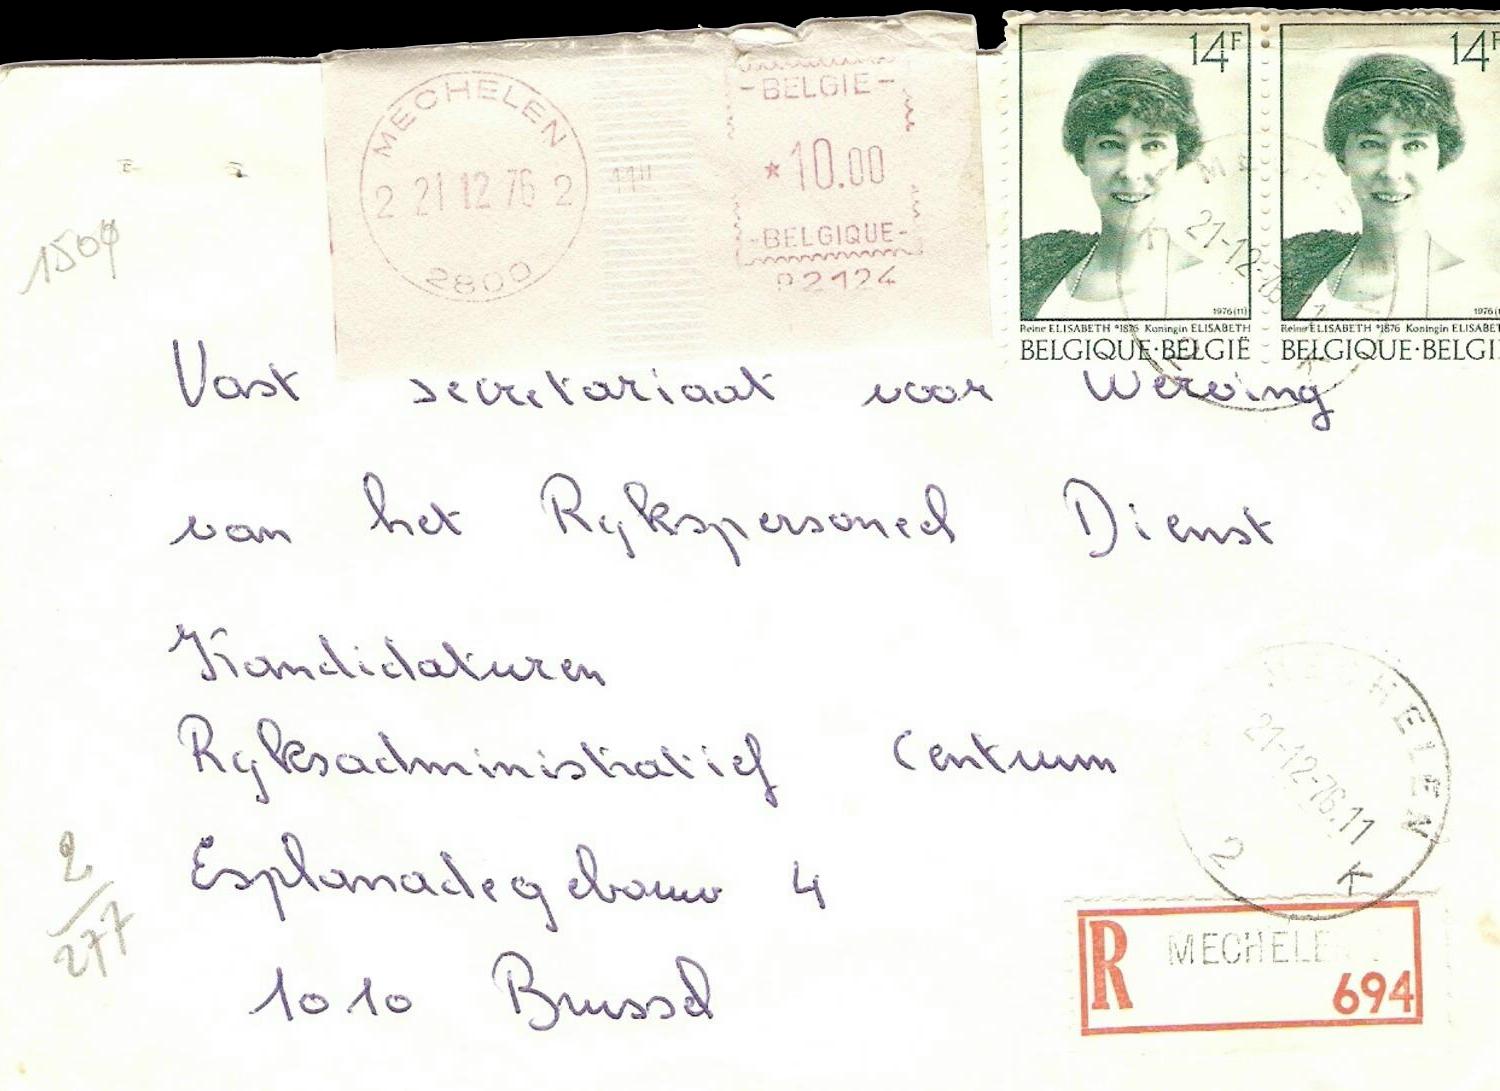 MECHELEN
2 21 12 76 2
2800
-BELGIE-
* 10.00
-BELGIQUE-
P2124
14F
1976(11)
Reine ELISABETH *1876 Koningin ELISABETH
BELGIQUE·BELGIË
14F
1976(1
Reine ELISABETH *1876 Koningin ELISABET
BELGIQUE·BELGI
21-12-76
Vast secretariaat voor Werving
van het Rijkspersoneel Dienst
Kandidaturen
Rijksadministratief Centrum
Esplanadegebouw 4
1010 Brussel
2
277
MECHELEN
21-12-76.11
2 K
R MECHELE
694